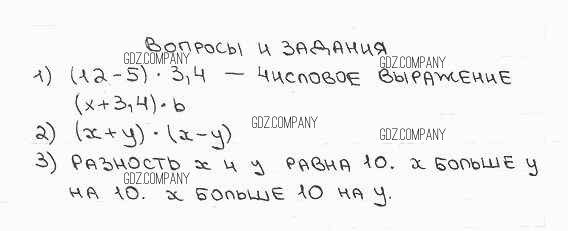 ВОПРОСЫ И ЗАДАНИЯ
GDZ.COMPANY GDZ.COMPANY
1) (12-5) · 3,4 — ЧИСЛОВОЕ ВЫРАЖЕНИЕ
(x+3,4) · b
GDZ.COMPANY
2) (x+y) · (x-y)
GDZ.COMPANY
3) РАЗНОСТЬ x И y РАВНА 10. x БОЛЬШЕ y
GDZ.COMPANY
НА 10. x БОЛЬШЕ 10 НА y.